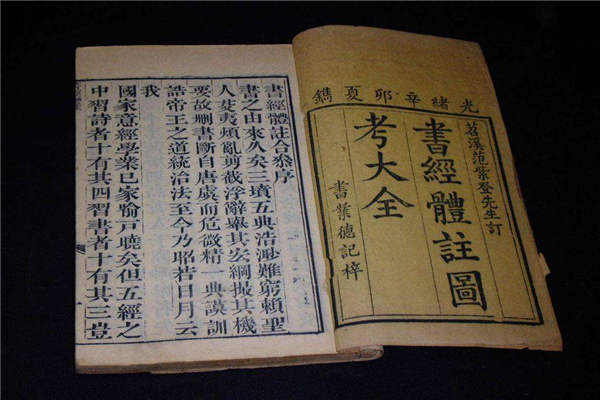 光緒辛卯夏鐫
苕溪范紫登先生訂
書經體註圖
考大全
書業德記梓
書經體註合叅序
書之由來久矣三墳五典浩渺難窮賴聖
人芟夷煩亂剪截浮辭舉其宏綱撮其機
要故刪書斷自唐虞而危微精一典謨訓
誥帝王之道統治法至今乃昭若日月云
我
國家意經學業已家喻戶曉矣但五經之
中習詩者十有其四習書者十有其三豈